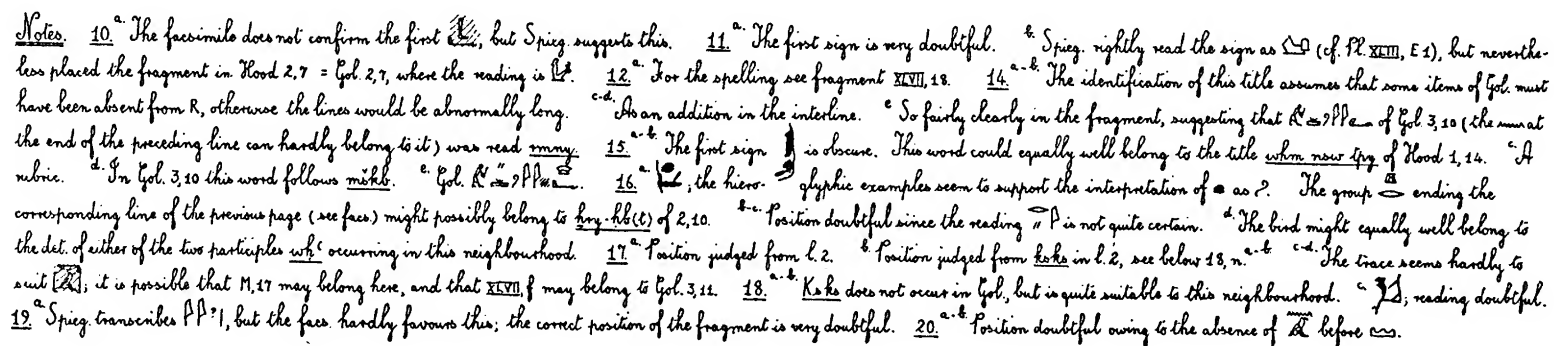 Notes. 10.a. The facsimile does not confirm the first , but Spieg. suggests this. 11.a. The first sign is very doubtful. b. Spieg. rightly read the sign as (cf. Pl. XLIII, E 1), but neverthe-
less placed the fragment in Hood 2,7 = Gol. 2,7, where the reading is . 12.a. For the spelling see fragment XLVII, 18. 14.a-b. The identification of this title assumes that some items of Gol. must
have been absent from R, otherwise the lines would be abnormally long. c-d. As an addition in the interline. e So fairly clearly in the fragment, suggesting that of Gol. 3,10 (the at
the end of the preceding line can hardly belong to it) was read mny. 15.a-b. The first sign is obscure. This word could equally well belong to the title whm nsw tpy of Hood 1,14. c. A
rubric. d. In Gol. 3,10 this word follows mškb. e. Gol. 16.a. ; the hiero- glyphic examples seem to support the interpretation of as ?. The group ending the
corresponding line of the previous page (see facs.) might possibly belong to hry-hb(t) of 2,10. b-c. Position doubtful since the reading is not quite certain. d. The bird might equally well belong to
the det. of either of the two participles whꜥ occurring in this neighbourhood. 17.a. Position judged from l. 2. b. Position judged from ksks in l. 2, see below 18, n. a-b. c-d. The trace seems hardly to
suit ; it is possible that M, 17 may belong here, and that XLVII, f may belong to Gol. 3,11. 18.a-b. Ksks does not occur in Gol., but is quite suitable to this neighbourhood. c. ; reading doubtful.
19.a. Spieg. transcribes , but the facs. hardly favours this; the correct position of the fragment is very doubtful. 20.a-b. Position doubtful owing to the absence of before .